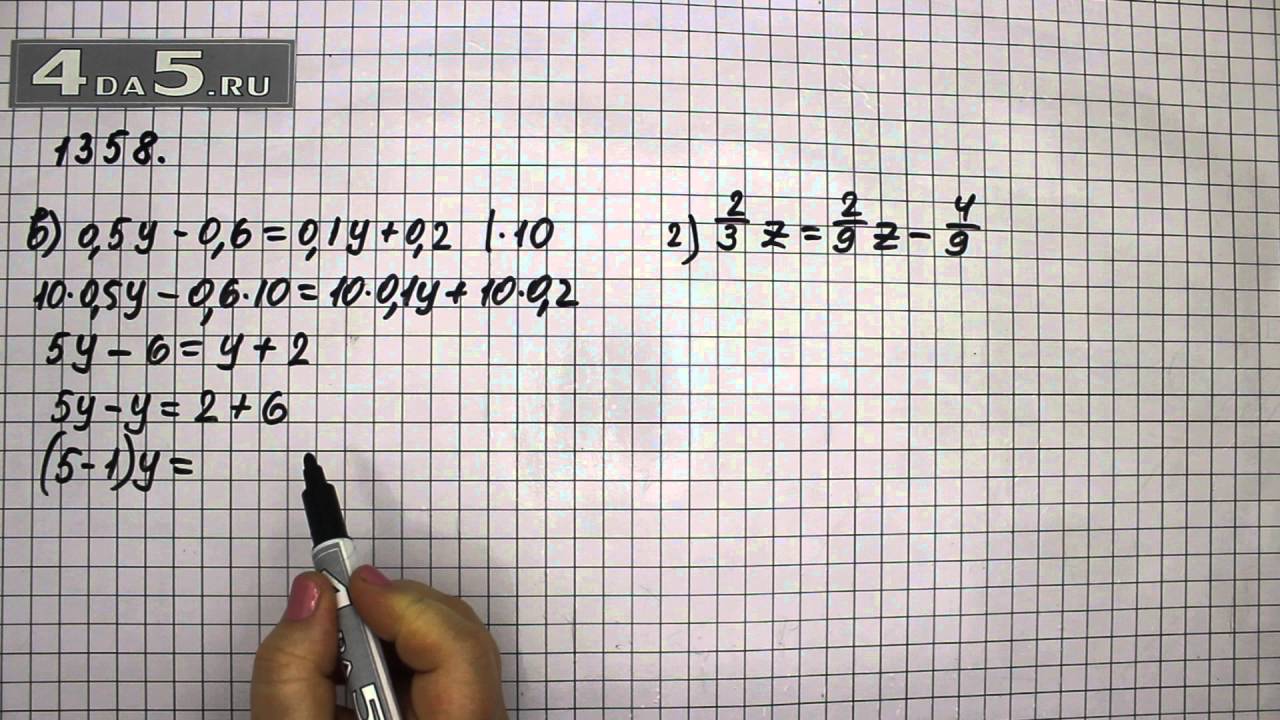 4DA5.RU
1358.
в) 0,5y - 0,6 = 0,1y + 0,2 |·10
10·0,5y - 0,6·10 = 10·0,1y + 10·0,2
5y - 6 = y + 2
5y - y = 2 + 6
(5-1)y =
г) 2/3 z = 2/9 z - 4/9